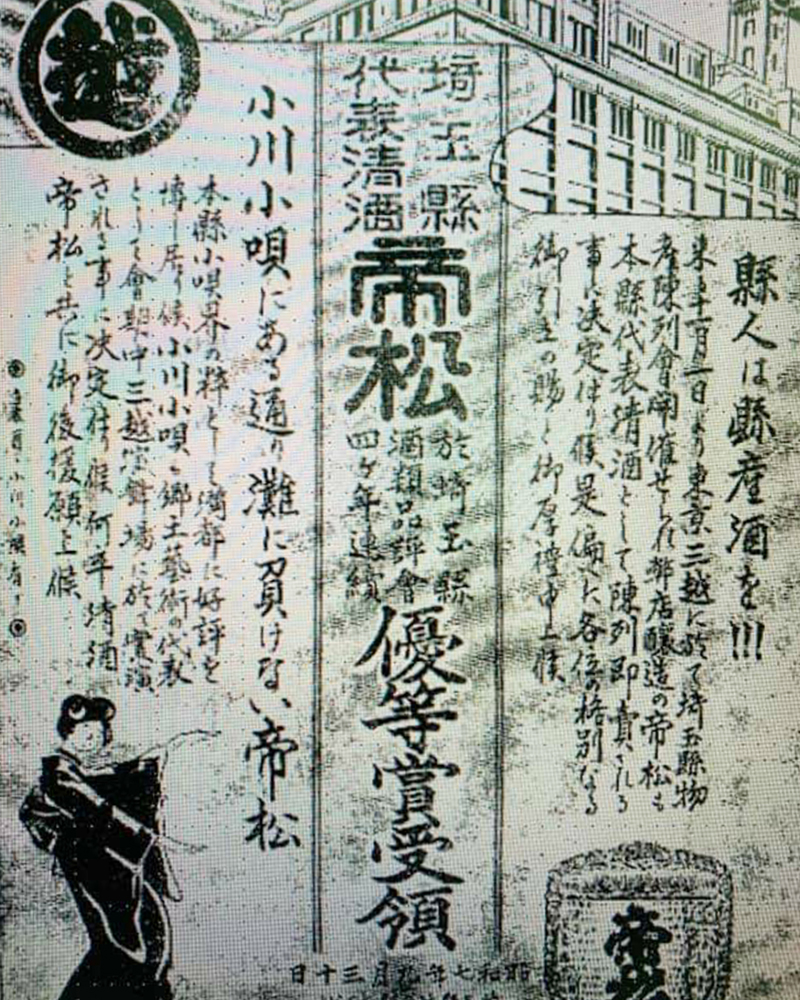 縣人は縣産酒を!!!
来る十一月一日より東京三越に於て埼玉縣物
産陳列會開催せられ弊店釀造の帝松も
本縣代表清酒として陳列即賣される
事に決定仕り候是偏に各位の格別なる
御引立の賜と御厚禮申上候
埼玉縣
代表清酒
帝松
於埼玉縣
酒類品評會
四ヶ年連續
優等賞受領
小川小唄にある通り灘に負けない帝松
本縣小唄界の粋として満都に好評を
博し居り候小川小唄も郷土藝術の代表
として會期中三越演舞場に於て實演
される事に決定仕り候何卒清酒
帝松と共に御後援願上候
越
帝松
日十三月
年七和昭